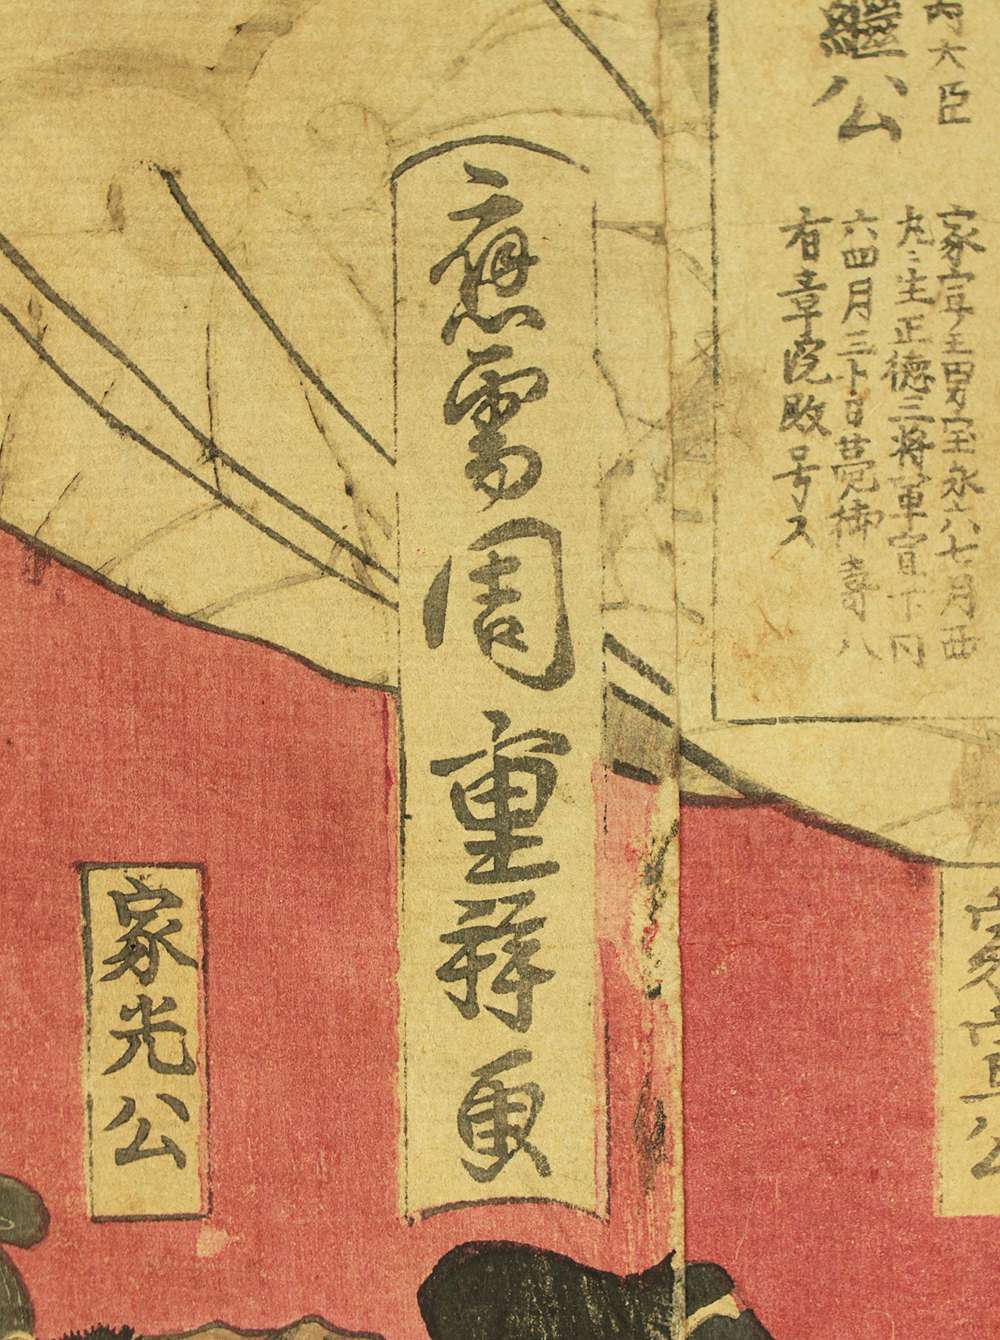 内大臣
繼公
家宣三男宝永六七月西
丸ニ生正徳三将軍宣下同
六四月三十日薨御壽八
有章院殿号ス
家宣公
應需周重
家光公